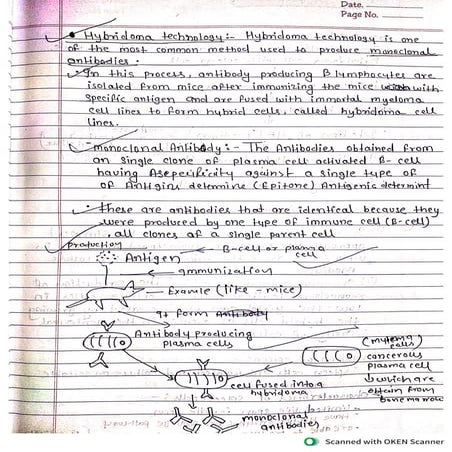 Date.
Page No.
Hybridoma technology:- Hybridoma technology is one
of the most common method used to produce monoclonal
antibodies.
In this process, antibody producing B lymphocytes are
isolated from mice after immunizing the mice with
specific antigen and are fused with immortal myeloma
cell lines to form hybrid cells, called hybridoma cell
lines.
monoclonal Antibody:- The Antibodies obtained from
an single clone of plasma cell activated B-cell
having Asepecificity against a single type of
of Antigins detemine (Epitone) Antigenic detemint
These are antibodies that are identical because they
were produced by one type of immune cell (B-cell)
all clones of a single parent cell
production
B-cell or plasma
cell
Antigen
ammunization
Examle (like - mice)
It form Antibody
Antibody producing
plasma cells
(mylema
cells
cancerous
plasma cell
which are
obtain from
bone marrow
cell fused into a
hybridoma
monoclonal
antibodies
Scanned with OKEN Scanner